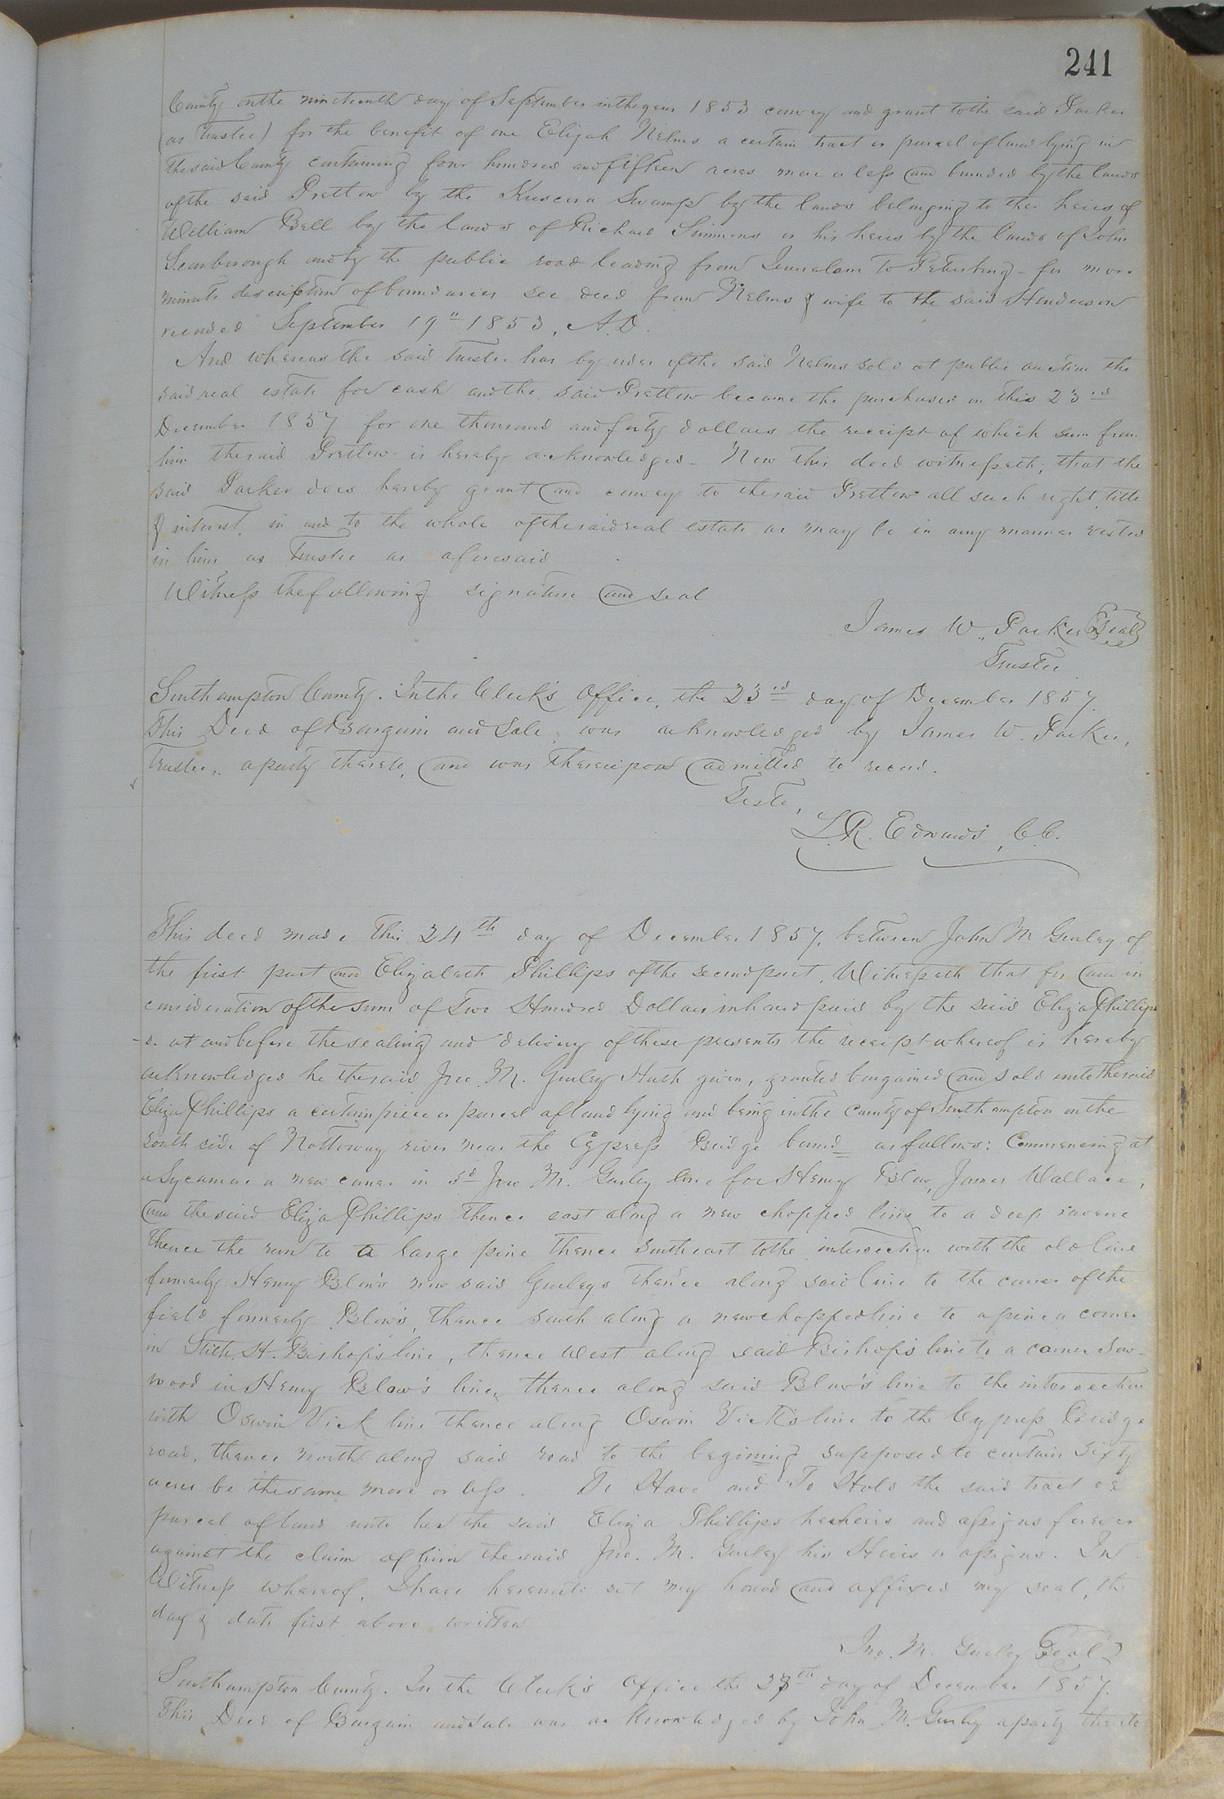 241
County on the nineteenth day of September in the year 1853 convey and grant to the said Parker
(as Trustee) for the benefit of one Elijah Nelms a certain tract or parcel of land lying in
the said County containing four hundred and fifteen acres more or less and bounded by the lands
of the said Pretlow by the Swamp by the lands belonging to the heirs of
William Bell by the lands of Richard Simmons or his heirs by the lands of John
Scarborough and by the public road leading from Jerusalem to Petersburg - for more
minute description of boundaries see deed from Nelms & wife to the said Henderson
recorded September 19th 1853, A.D.
And whereas the said Trustee has by order of the said Nelms sold at public auction the
said real estate for cash and the said Pretlow became the purchaser on this 23rd
December 1857 for one thousand and forty dollars the receipt of which sum from
him the said Pretlow is hereby acknowledged - Now this deed witnesseth, that the
said Parker does hereby grant and convey to the said Pretlow all such right, title
& interest, in and to the whole of the said real estate as may be in any manner vested
in him as Trustee as aforesaid
Witness the following signature and seal
James W. Parker {Seal}
Trustee
Southampton County. In the Clerk's Office, the 23rd day of December 1857.
This Deed of Bargain and Sale, was acknowledged by James W. Parker,
Trustee, a party thereto, and was thereupon admitted to record.
Teste,
L.R. Edwards, C.C.
This deed made this 24th day of December 1857, between John M Gurley of
the first part and Elizabeth Phillips of the second part, Witnesseth that for and in
consideration of the sum of Two Hundred Dollars in hand paid by the said Eliza Phillip
-s. at and before the sealing and delivery of these presents the receipt whereof is hereby
acknowledged he the said Jno. M. Gurley Hath given, granted bargained and sold unto the said
Eliza Phillips a certain piece or parcel of land lying and being in the county of Southampton on the
south side of Nottoway river near the Cypress Bridge bound as follows: Commencing at
a Sycamore a new corner in sd Jno M. Gurley line for Henry Blow, James Wallace,
and the said Eliza Phillips thence east along a new chopped line to a deep ravene
thence the run to a large pine thence Southeast to the intersection with the old line
formerly Henry Blow's now said Gurleys thence along said line to the corner of the
field formerly Blow's, thence south along a new chopped line to a pine a corner
in Stith H. Bishop's line, thence West along said Bishop's line to a corner
wood in Henry Blow's line, thence along said Blow's line to the intersection
with Oswin Vick line thence along Oswin Vick's line to the Cypress bridge
road, thence north along said road to the begining supposed to contain Sixty
acres be the same more or less. To Have and To Hold the said tract or
parcel of land unto her the said Eliza Phillips her heirs and assigns forever
against the claim of him the said Jno. M. Gurley his Heirs or assigns. In
Witness whereof, I have hereunto set my hand and affixed my seal, the
day & date first above written
Jno. M. Gurley {Seal}
Southampton County. In the Clerk's Office the day of December 1857.
This Deed of Bargain and sale was acknowledged by John M. Gurley a party thereto